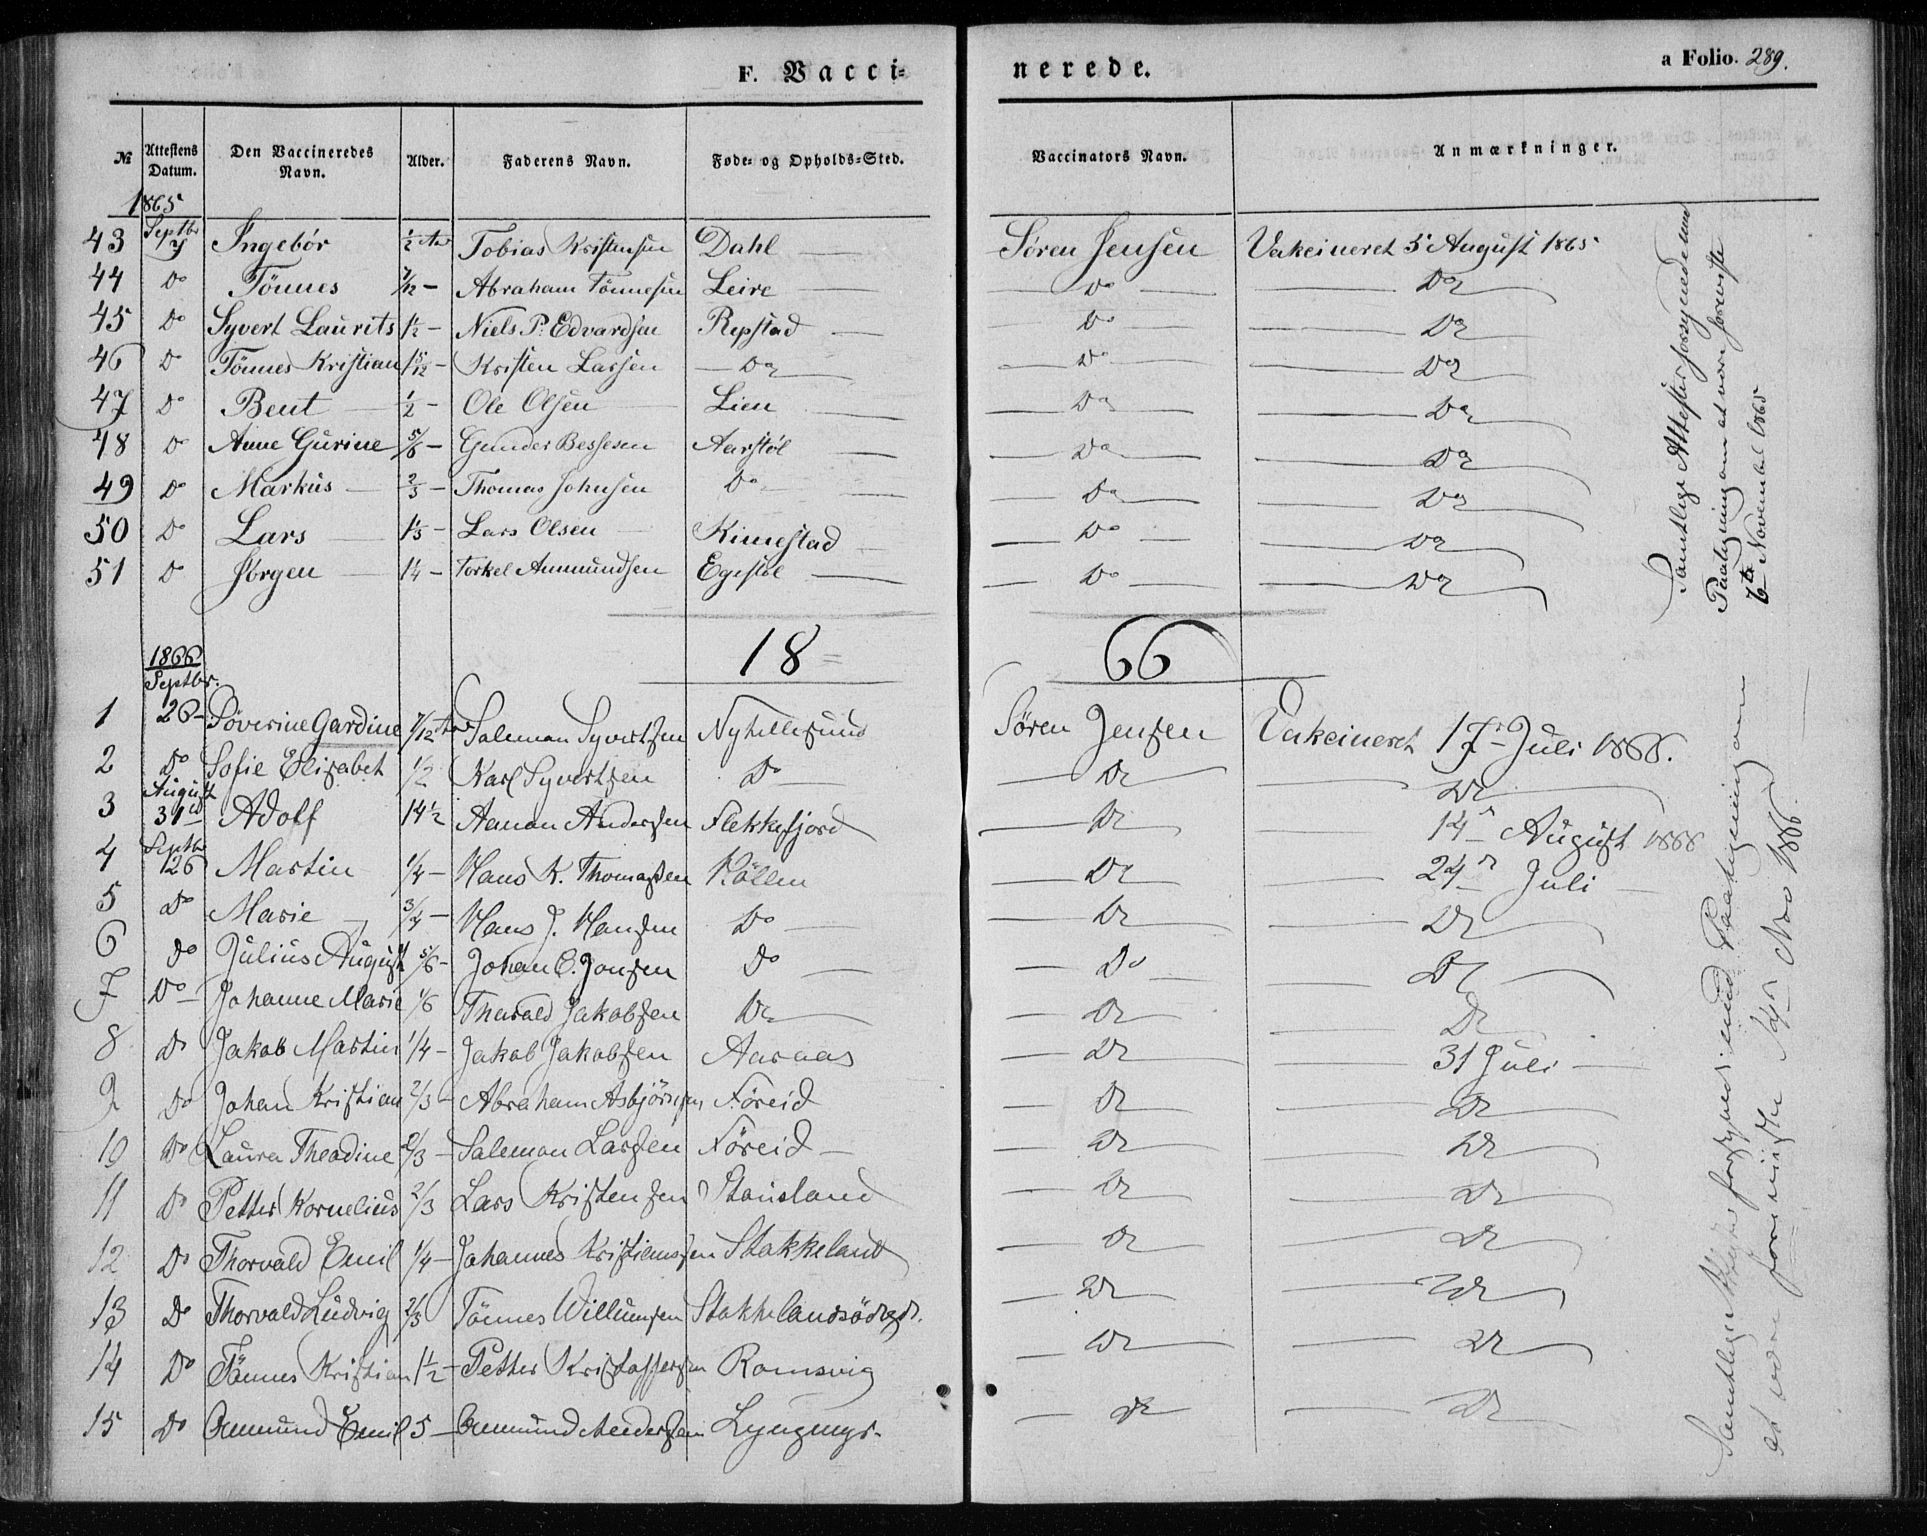 F. Vacci=
nerede.
a Folio. 289.
№ Attestens Datum. Den Vaccineredes Navn. Alder. Faderens Navn. Føde= og Opholds=Sted. Vaccinators Navn. Anmærkninger.
1865
43 Septbr 7 Ingebór ½ Aar Tobias Kristensen Dahl Søren Jensen Vakcineret 5 August 1865
44 Do Tönnes 7/12 - Abraham Tönnesen Leire Do Do
45 Do Syvert Laurits 1½ - Niels P. Edvardsen Repstad Do Do
46 Do Tönnes Kristian 1 5/12 - Kristen Larsen Do Do Do
47 Do Bent ½ - Ole Olsen Lien Do Do
48 Do Anne Gurine 5/6 - Gunder Bessesen Aarstøl Do Do
49 Do Markus 2/3 - Thomas Johnsen Do Do Do
50 Do Lars 1⅓ - Lars Olsen Kimestad Do Do
51 Do Jörgen 1¼ - Torkel Ammundsen Egestøl Do Do
Samtlige Attester forsynede med
Paategning om at være foreviste
6te Novembr 1865
18 = 66
1866
Septbr.
1 26 - Söverine Gardine 7/12 Aar Saleman Syvertsen Nyhellesund Sören Jensen Vakcineret 17de Juli 1866.
2 Do Sofie Elisabet ½ Karl Syvertsen Do Do Do
3 August 31te Adolf 14½ Aanon Andersen Flekkefjord Do 14de August 1866
4 Septbr 26 Martin ¼ - Hans K. Thomassen Höllen Do 24de Juli
5 Do Marie ¾ - Hans J. Hansen Do Do Do
6 Do Julius August 5/6 - Johan C. Jonsen Do Do Do
7 Do Johanne Marie 1/6 Thorvald Jakobsen Do Do Do
8 Do Jakob Martin ¼ - Jakob Jakobsen Aaraas Do 31 Juli
9 Do Johan Kristian 2/3 - Abraham Asbjörnsen Föreid Do Do
10 Do Laura Theodine 2/3 - Saleman Larsen Föreid Do Do
11 Do Petter Kornelius 2/3 Lars Kristensen Stausland Do Do
12 Do Thorvald Emil ¼ - Johannes Kristiansen Stakkeland Do Do
13 Do Thorvald Ludvig 2/3 Tönnes Willumsen Stakkelandsödegd. Do Do
14 Do Tönnes Kristian 1½ - Petter Kristoffersen Romsvig Do Do
15 Do Ommund Emil 5 - Ommund Do Do
Samtlige forsynede med Paategning om
at være foreviste Nov 1866.